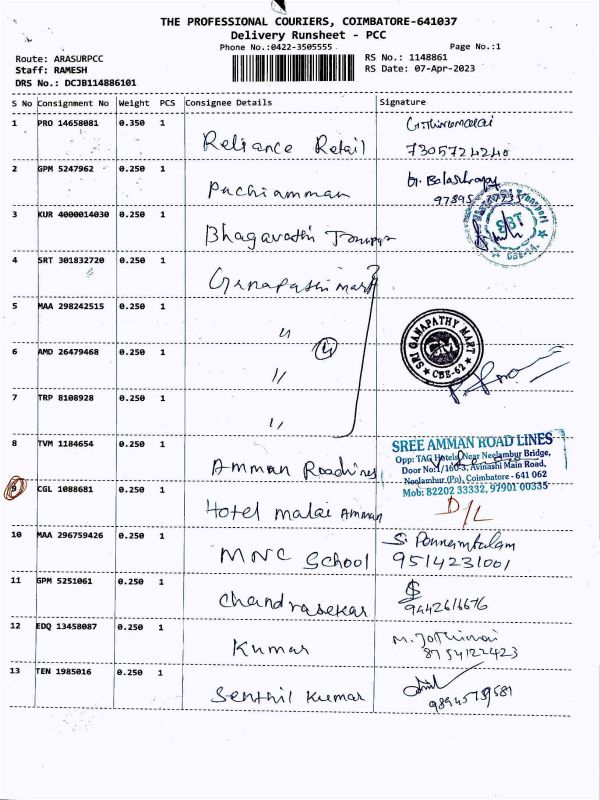 THE PROFESSIONAL COURIERS, COIMBATORE-641037
Delivery Runsheet - PCC
Phone No.:0422-3505555
Page No.:1
Route: ARASURPCC
RS No.: 1148861
Staff: RAMESH
RS Date: 07-Apr-2023
DRS No.: DCJB114886101
S No Consignment No Weight PCS Consignee Details Signature
1 PRO 14658081 0.350 1 Reliance Retail
7305724240
2 GPM 5247962 0.250 1 Pachiamman
3 KUR 4000014030 0.250 1 Bhagavathi
SBT
CBE-14
4 SRT 301832720 0.250 1 Ganapathi mart
5 MAA 298242515 0.250 1 "
SRI GANAPATHY MART
CBE-62
6 AMD 26479468 0.250 1 " 4
7 TRP 8108928 0.250 1 "
8 TVM 1184654 0.250 1 Amman Roadlines
SREE AMMAN ROAD LINES
Opp: TAG Hotels, Near Neelambur Bridge,
Door No:1/160-3, Avinashi Main Road,
Neelambur (Po), Coimbatore - 641 062
Mob: 82202 33332, 97901 00335
9 CGL 1088681 0.250 1 Hotel malai Amman D/L
10 MAA 296759426 0.250 1 MNC School
S. Ponnambalam
9514231001
11 GPM 5251061 0.250 1 Chandrasekar
9442616676
12 EDQ 13458087 0.250 1 Kumar
M. Jothimai
8754122423
13 TEN 1985016 0.250 1 Senthil Kumar